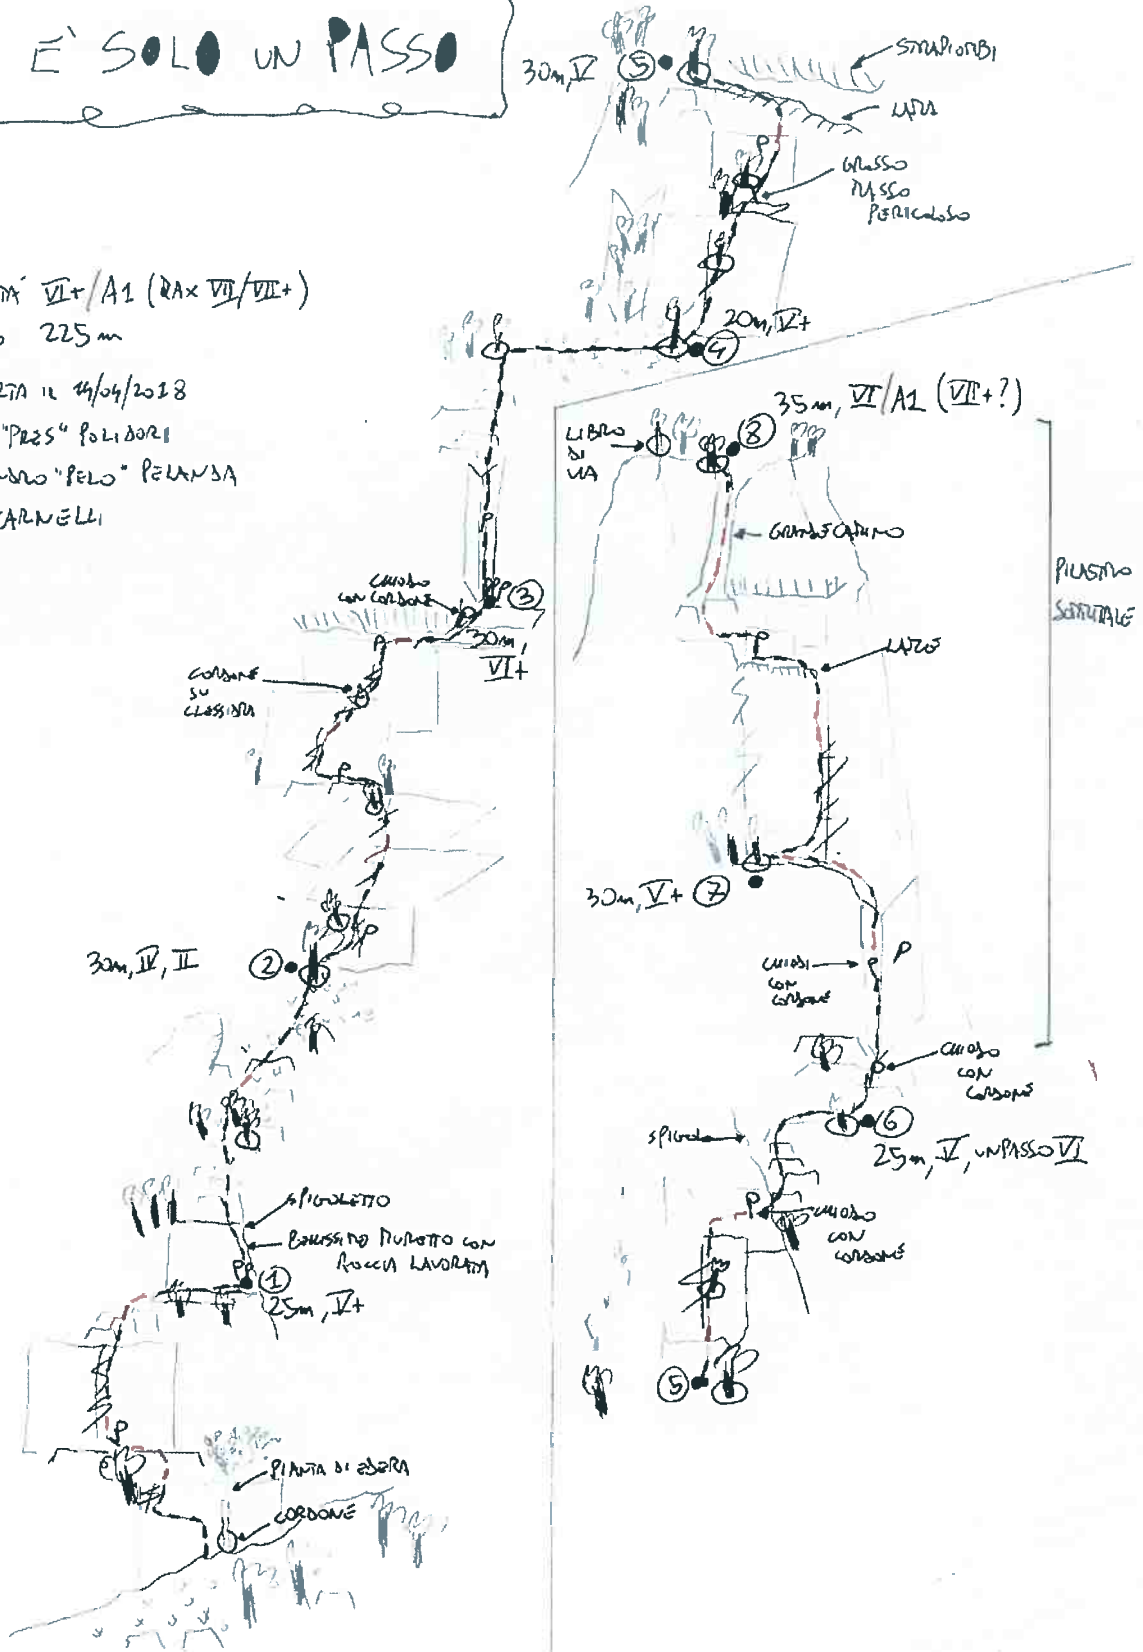 È SOLO UN PASSO
TÀ VI+/A1 (MAX VII/VII+)
225 m
RTA IL 14/04/2018
"PRES" POLIDORI
NDRO "PELO" PELANDA
CARNELLI
30m, V 5
STRAPIOMBI
LAMA
P
GROSSO
MASSO
PERICOLOSO
20m, V+
4
P
CHIODO
CON CORDONE
PP 3
30m,
VI+
P
CORDONE
SU
CLESSIDRA
P
P
30m, IV, II 2
SPIGOLETTO
BELLISSIMO MURETTO CON
ROCCIA LAVORATA
PP 1
25m, V+
P
PIANTA DI EDERA
CORDONE
35m, VI/A1 (VII+?)
8
LIBRO
DI
VIA
GRANDE CAMINO
PILASTRO
SOMMITALE
P
LAME
30m, V+ 7
P
CHIODI
CON
CORDONE
P
CHIODO
CON
CORDONE
6
25m, V, UN PASSO VI
SPIGOLO
P
CHIODO
CON
CORDONE
5